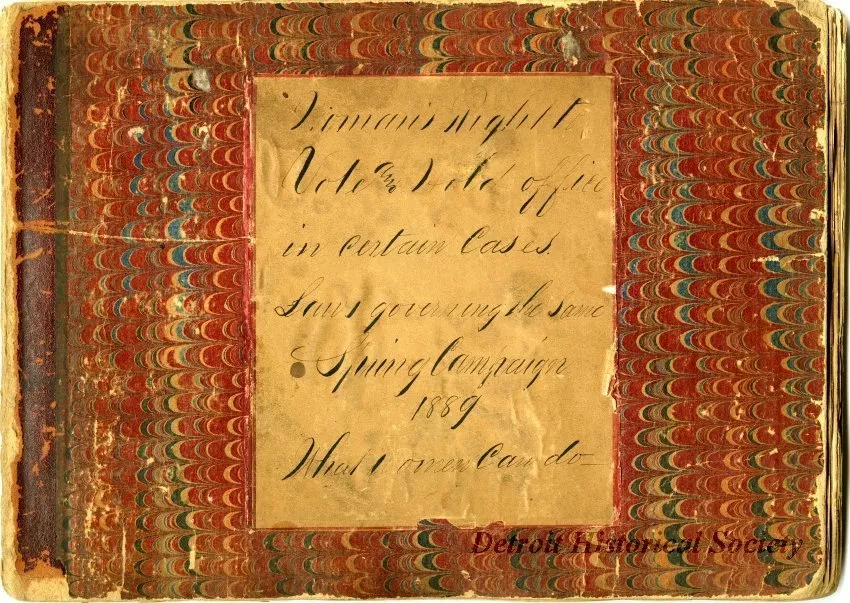 Woman's Right to
Vote and hold office
in certain Cases.
Laws governing the same
Spring Campaign
1889
What women Can do
Detroit Historical Society